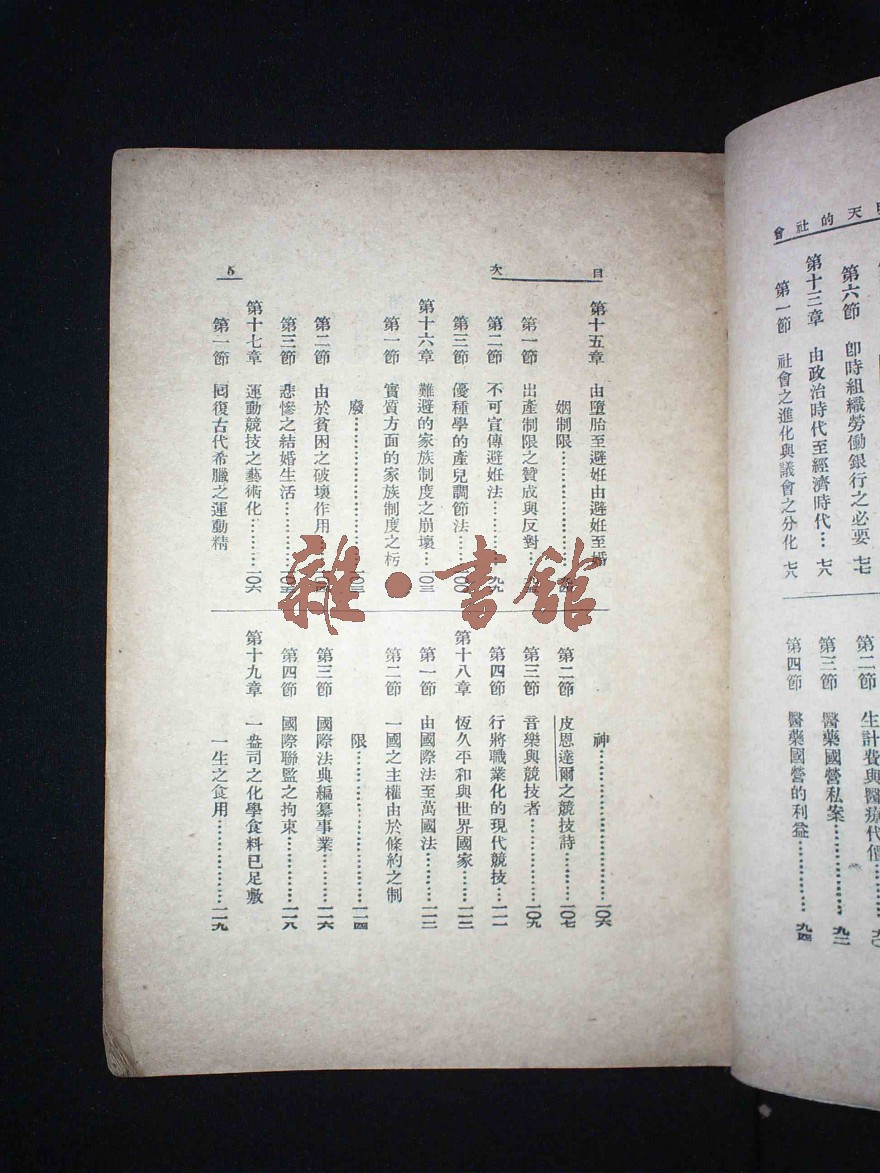 天的社會
第六節 卽時組織勞働銀行之必要 七七
第十三章 由政治時代至經濟時代…七八
第一節 社會之進化與議會之分化 七八
第二節 生計費與醫療代價………九〇
第三節 醫藥國營私案………九二
第四節 醫藥國營的利益………九四
目次
5
第十五章 由墮胎至避妊由避妊至婚
姻制限………九四
第一節 出產制限之贊成與反對…
第二節 不可宣傳避妊法………九九
第三節 優種學的產兒調節法…一〇〇
第十六章 難避的家族制度之崩壞…一〇三
第一節 實質方面的家族制度之朽
廢………一〇三
第二節 由於貧困之破壞作用
第三節 悲慘之結婚生活………一〇五
第十七章 運動競技之藝術化………一〇六
第一節 囘復古代希臘之運動精
神………一〇六
第二節 皮恩達爾之競技詩………一〇七
第三節 音樂與競技者………一〇九
第四節 行將職業化的現代競技…一一一
第十八章 恆久平和與世界國家…一一二
第一節 由國際法至萬國法………一一二
第二節 一國之主權由於條約之制
限………一一四
第三節 國際法典編纂事業………一一六
第四節 國際聯監之拘束………一一八
第十九章 一盎司之化學食料已足敷
一生之食用………一一九
雜·書館